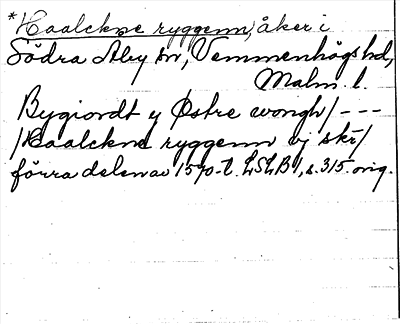 *Haalckne ryggenn, åker i
Södra Åby sn, Vemmenhögs hd,
Malm. l.
Bygiordt y Østre wongh / - - -
/ Haalckne ryggenn vj skr /
förra delen av 1570-t. LSLB 1, s. 315. orig.